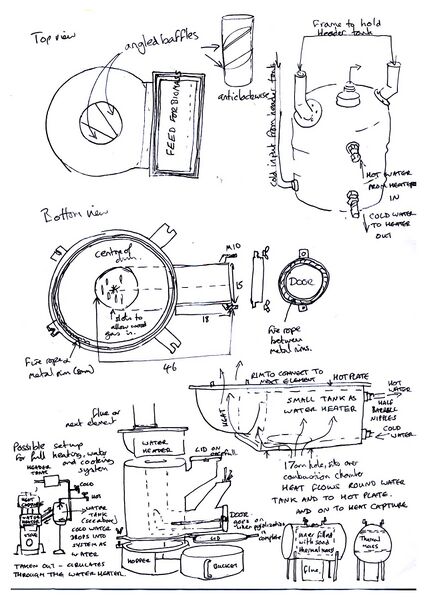 Top view
angled baffles
anticlockwise
FEED FOR BIOMASS
Frame to hold
Header tank
cold input from header tank
HOT WATER
FROM HEATER
IN
COLD WATER
TO HEATER
OUT
Bottom view
centre of
drum
slots to
allow wood
gas in.
M10
15
18
46
DOOR
Fire rope
between
metal rims.
Fire rope &
metal rim (5mm)
RIM TO CONNECT TO
NEXT ELEMENT
HOT PLATE
HEAT
SMALL TANK AS
WATER HEATER
HOT
WATER
HALF
BARREL
NIPPLES
COLD
WATER
17cm hole, sits over
combustion chamber
HEAT FLOWS ROUND WATER
TANK AND TO HOT PLATE.
AND ON TO HEAT CAPTURE
flue or
next element
WATER
HEADER
LID ON
once full
DOOR
goes on
when pyrolisation
complete
LID
HOPPER
BUCKET
Possible set up
for full heating, water
and cooking
system
HEADER
TANK
COLD
HOT
WATER
TANK
(see above)
COLD WATER
DROPS INTO
SYSTEM AS
WATER
TAKEN OUT - CIRCULATES
THROUGH THE WATER HEATER
STOVE
inner filled
with sand
thermal mass
flue
Thermal
mass